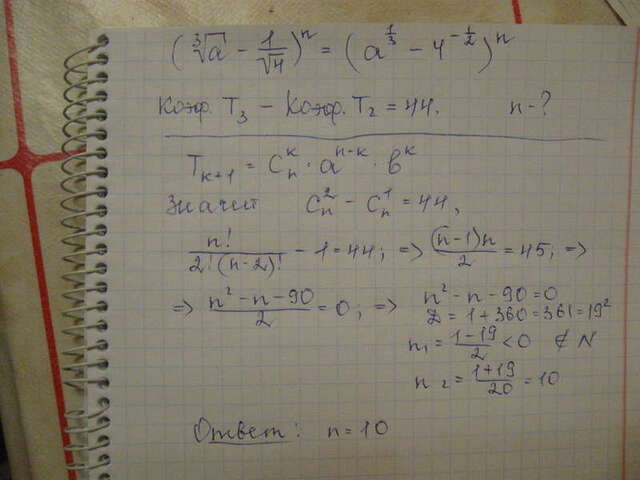 (∛a - 1/√4)ⁿ = (a^(1/3) - 4^(-1/2))ⁿ
Коэф. T₃ - Коэф. T₂ = 44. n - ?
T_(k+1) = C_n^k · a^(n-k) · b^k
Значит C_n^2 - C_n^1 = 44,
n!/(2!(n-2)!) - 1 = 44; => (n-1)n/2 = 45; =>
=> (n² - n - 90)/2 = 0; => n² - n - 90 = 0
D = 1 + 360 = 361 = 19²
n₁ = (1-19)/2 < 0 ∉ N
n₂ = (1+19)/20 = 10
Ответ: n = 10